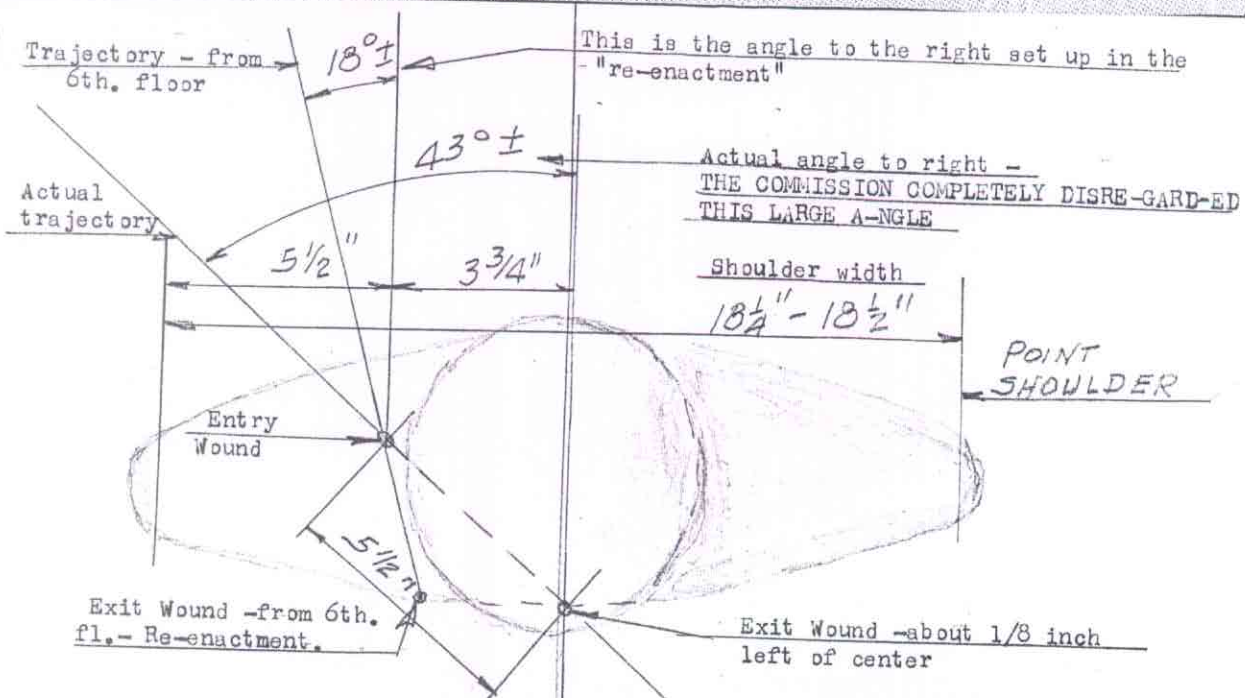 Trajectory - from
6th. floor
18° ±
This is the angle to the right set up in the
"re-enactment"
43° ±
Actual angle to right -
THE COMMISSION COMPLETELY DISRE-GARD-ED
THIS LARGE A-NGLE
Actual
trajectory
5 1/2"
3 3/4"
Shoulder width
18 1/4" - 18 1/2"
POINT
SHOULDER
Entry
Wound
5 1/2"
Exit Wound -from 6th.
fl.- Re-enactment.
Exit Wound -about 1/8 inch
left of center